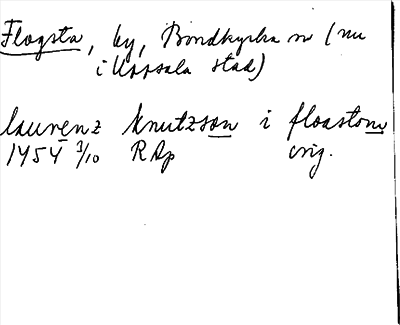 Flogsta, by, Bondkyrka sn (nu
i Uppsala stad)
laurenz knutzson i floastom
1454 3/10 RAp orig.